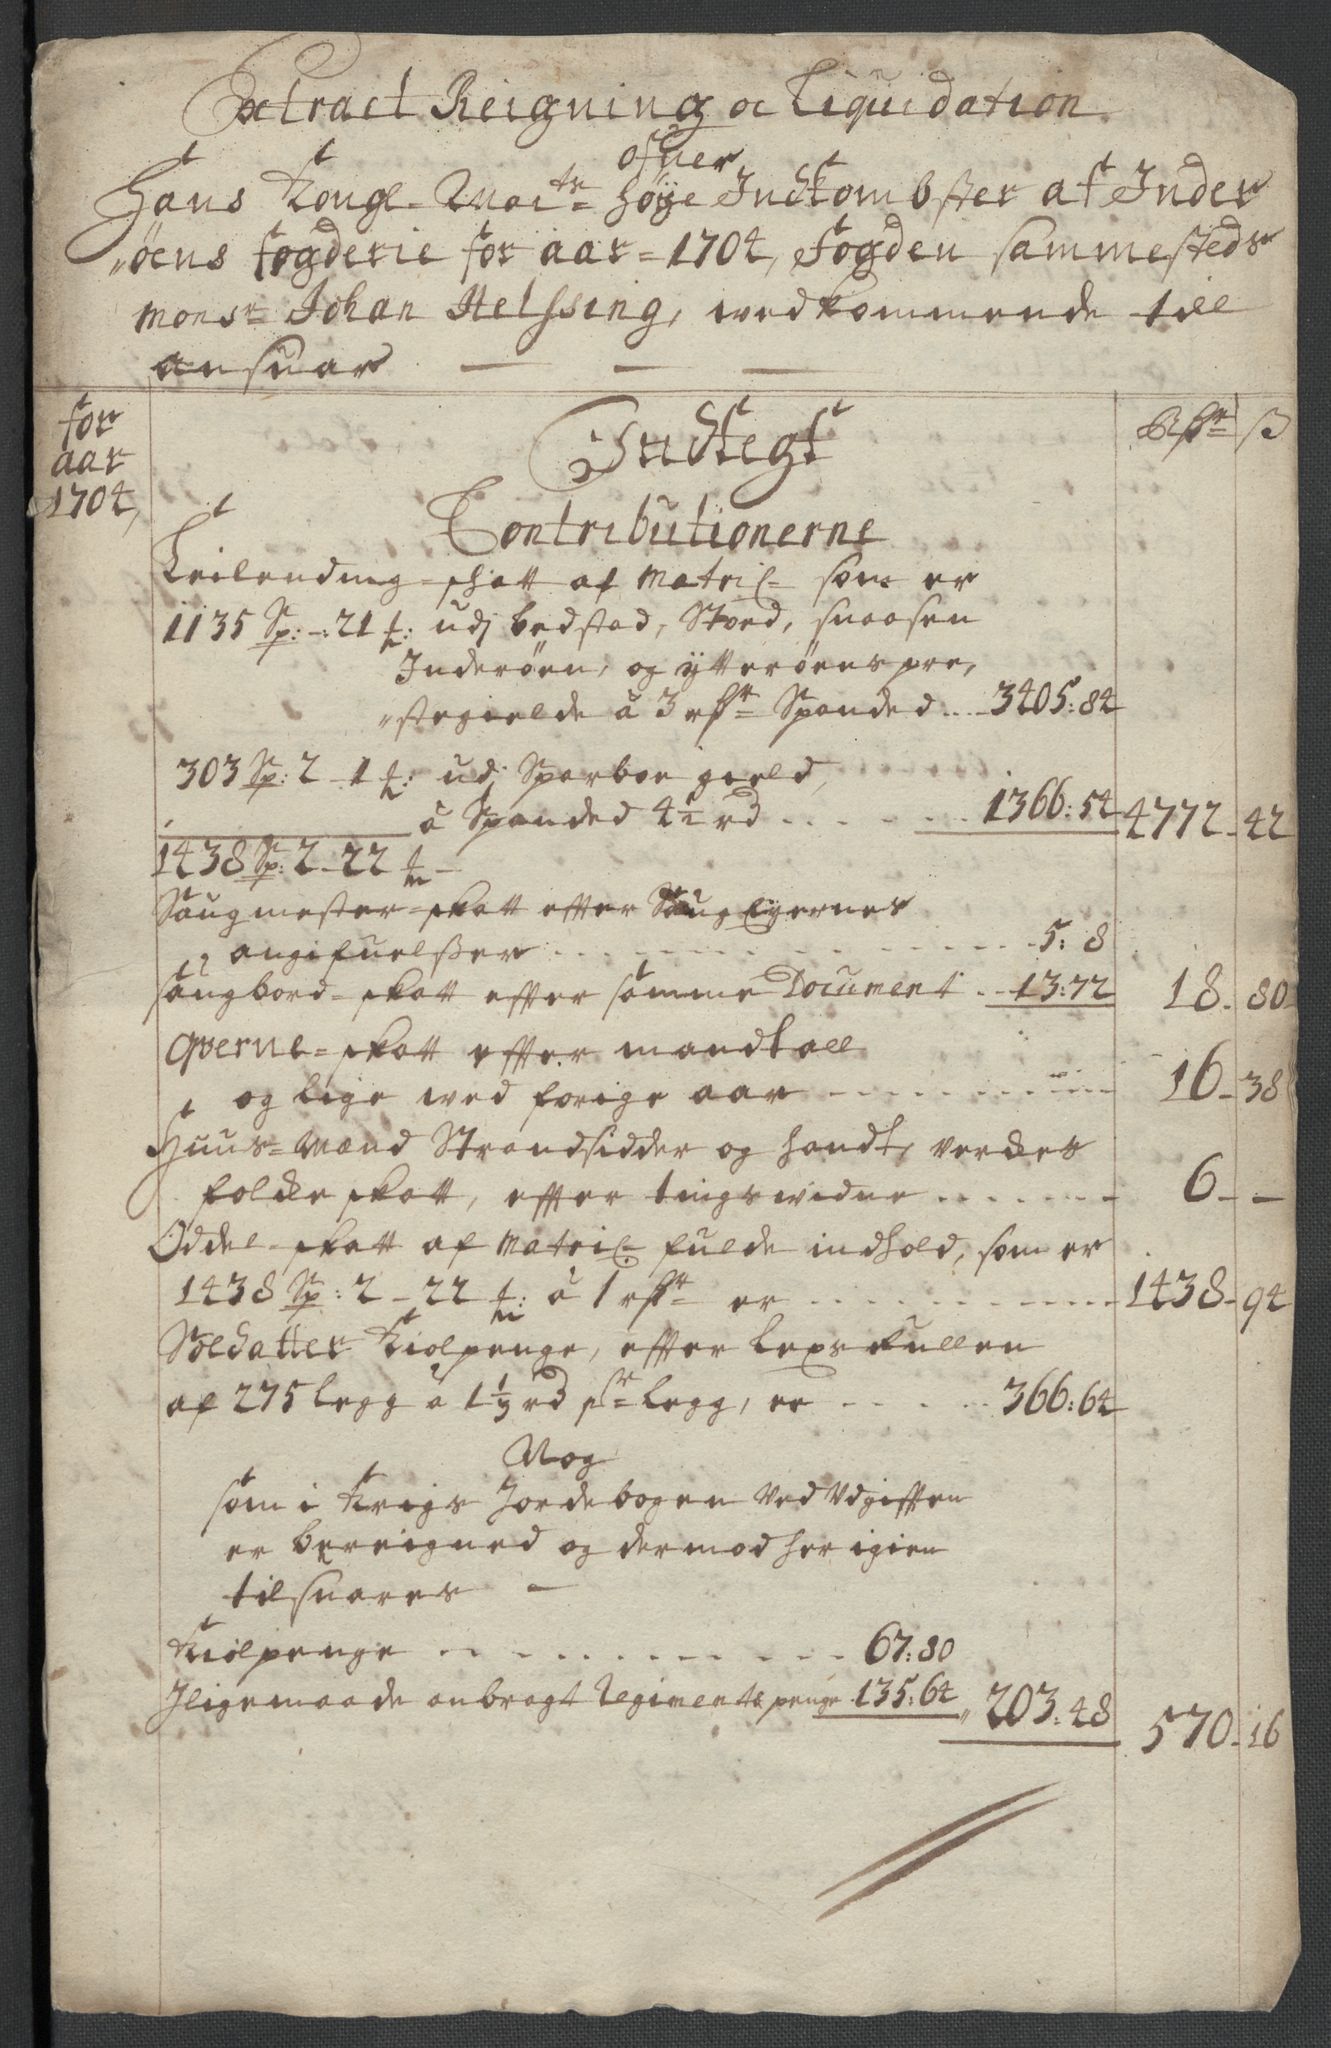 Extract Reigning oc Liquidation
ofuer
Hans Kongl. Maitts høÿe Indkombster af Inder
øens fogderie for aar = 1704, Fogden sammesteds
Monsr Johan Helssing, wedkommende till
ansuar
for
aar
1704,
Indtegt
Rdr ß
Contributionerne
Leilending - schatt af Matric. som er
1135 Sp: -: 21 ℔: udj bedstad, Stod, snaasen
Inderøen, og ÿtterøens pre,
stegielde â 3 rdr Spanded .... 3405:84
303 Sp: 2 - 1 ℔: udj Sparboe gield,
â Spanded 4½ rd . . . . . . . 1366:54 4772 - 42
1438 Sp: 2 - 22 ℔ -
Saugmester - skatt effter Saug Eÿernes
angifuelßer . . . . . . . . . . 5: 8
saugbord - skatt effter samme Document . . 13:72 18 - 80
Qverne = skatt effter mandtall
og lige wed forige aar . . . . . . . . . 16 - 38
Huus = Mænd Strandsidder og handt, verckes
folcke skatt, effter tingswidne . . . . . . . 6 - -
Oddel - skatt af Matric. fulde indhold, som er
1438 Sp: 2 - 22 ℔: â 1 rdr er . . . . . . . . . 1438 - 94
Soldatter Kiolpenge, effter Legs Rullen
af 275 legg â 1⅓ rd pr legg, er . . . . . 366:64
Nog
som i Krigs Jordebogen ved Udgifften
er bereigned og dermod her igien
tilsuares -
Kiolpenge . . . . . . . . . . . 67:80
Iligemaade anbragt Regiments penge 135:64 203:48 570 - 16